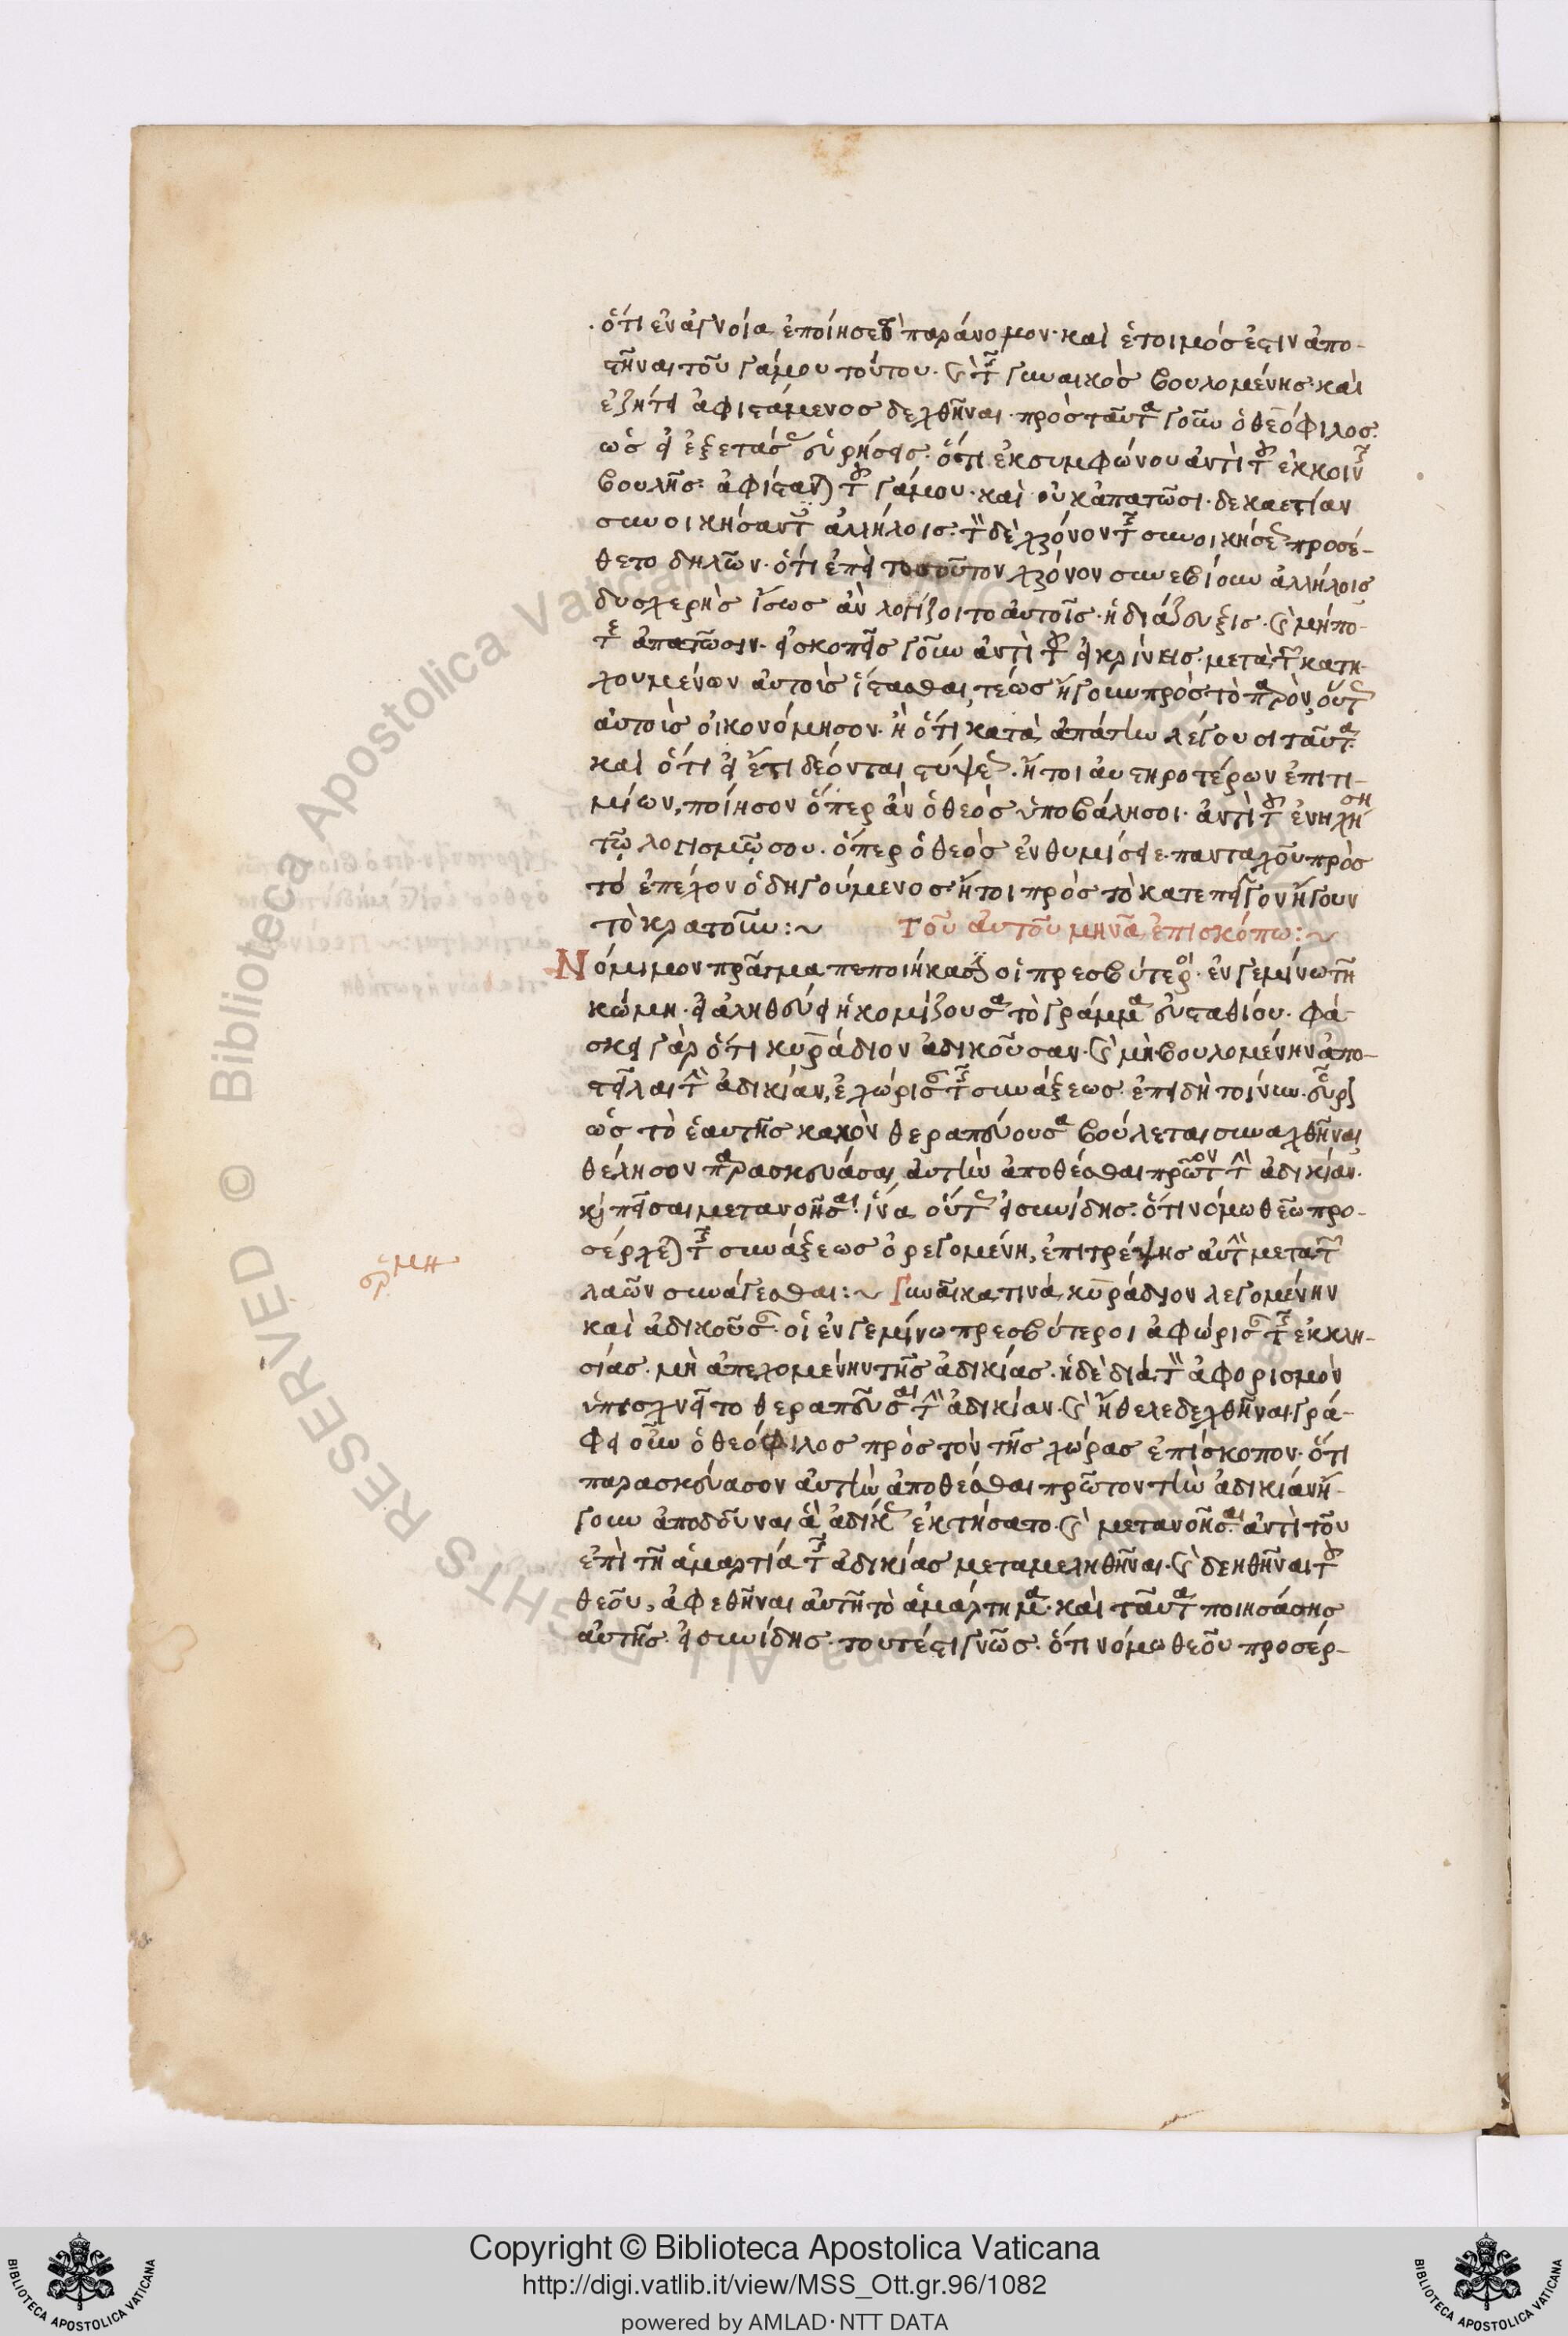 ὅτι ἐν ἀγνοία ἐποίησε τὸ παράνομον· καὶ ἕτοιμός ἐστιν ἀπο-
στῆναι τοῦ γάμου τούτου· καὶ τῆς γυναικὸς βουλομένης· καὶ
ἐζήτει ἀφιστάμενος δεχθῆναι· πρὸς ταῦτα γοῦν ὁ θεόφιλος·
ὡς εἰ ἐξετάσας εὑρήσεις· ὅτι ἐκ συμφώνου ἀντὶ τοῦ ἐκ κοινῆς
βουλῆς· ἀφίστανται τοῦ γάμου· καὶ οὐκ ἀπατῶσι· δεκαετίαν
συνοικήσαντες ἀλλήλοις· τὸν δὲ χρόνον τῆς συνοικήσεως προσέ-
θετο δηλῶν· ὅτι ἐπεὶ τοσοῦτον χρόνον συνεβίουν ἀλλήλοις
δυσχερὴς ἴσως ἂν λογίζοιτο αὐτοῖς· ἡ διάζευξις· καὶ μήπο-
τε ἀπατῶσιν· εἰ σκοπεῖς γοῦν ἀντὶ τοῦ εἰ κρίνεις· μετὰ τῶν κατη-
χουμένων αὐτοὺς ἵστασθαι, τέως ἤγουν πρὸς τὸ παρὸν, οὕτως
αὐτοὺς οἰκονόμησον· ἢ ὅτι κατὰ ἀπάτην λέγουσι ταῦτα·
καὶ ὅτι εἰ ἔτι δέονται στύψεως· ἤτοι αὐστηροτέρων ἐπιτι-
μίων, ποίησον ὅπερ ἂν ὁ θεὸς ὑποβάλῃ σοι· ἀντὶ τοῦ ἐνηχήση
τῷ λογισμῷ σου· ὅπερ ὁ θεὸς ἐνθυμίσειε· πανταχοῦ πρὸς
τὸ ἐπέχον ὁδηγούμενος· ἤτοι πρὸς τὸ κατεπεῖγον ἤγουν
τὸ κρατοῦν:~ Τοῦ αὐτοῦ μηνᾶ ἐπισκόπω:~
Νόμιμον πρᾶγμα πεποιήκασιν οἱ πρεσβύτεροι· ἐν γεμίνω τῆ
κώμη· εἰ ἀληθεύει ἡ κομίζουσα τὸ γράμμα εὐσταθίου· φά-
σκει γὰρ ὅτι κυράδιον ἀδικοῦσαν· καὶ μὴ βουλομένην ἀπο-
στεῖλαι τὴν ἀδικίαν, ἐχώρισαν τῆς συνάξεως· ἐπειδὴ τοίνυν εὗρον
ὡς τὸ ἑαυτῆς κακὸν θεραπεύουσα βούλεται συναχθῆναι
θέλησον παρασκευάσαι αὐτὴν ἀποθέσθαι πρῶτον τὴν ἀδικίαν·
καὶ πεῖσαι μετανοῆσαι· ἵνα οὕτως εἰ συνίδης· ὅτι νόμω θεῶ προ-
σέρχεται τῆς συνάξεως ὀρεγομένη, ἐπιτρέψης αὐτὴν μετὰ τῶν
λαῶν συνάγεσθαι:~ Γυναῖκα τινὰ κυράδιον λεγομένην
καὶ ἀδικοῦσαν· οἱ ἐν γεμίνω πρεσβύτεροι ἀφώρισαν τῆς ἐκκλη-
σίας· μὴ ἀπεχομένην τῆς ἀδικίας· ἡ δὲ διὰ τὸν ἀφορισμὸν
ὑπισχνεῖτο θεραπεῦσαι τὴν ἀδικίαν· καὶ ἤθελε δεχθῆναι· γρά-
φει οὖν ὁ θεόφιλος πρὸς τὸν τῆς χώρας ἐπίσκοπον· ὅτι
παρασκεύασον αὐτὴν ἀποθέσθαι πρῶτον τὴν ἀδικίαν ἤ-
γουν ἀποδοῦναι ἃ ἀδίκως ἐκτήσατο· καὶ μετανοῆσαι· ἀντὶ τοῦ
ἐπὶ τῆ ἁμαρτία τῆς ἀδικίας μεταμεληθῆναι· καὶ δεηθῆναι τοῦ
θεοῦ, ἀφεθῆναι αὐτῆ τὸ ἁμάρτημα· καὶ ταῦτα ποιησάσης
αὐτῆς· εἰ συνίδης· τουτέστι γνῶς· ὅτι νόμω θεοῦ προσέρ-
Copyright © Biblioteca Apostolica Vaticana
http://digi.vatlib.it/view/MSS_Ott.gr.96/1082
powered by AMLAD·NTT DATA
BIBLIOTECA APOSTOLICA VATICANA
BIBLIOTECA APOSTOLICA VATICANA
© Biblioteca Apostolica Vaticana ALL RIGHTS RESERVED